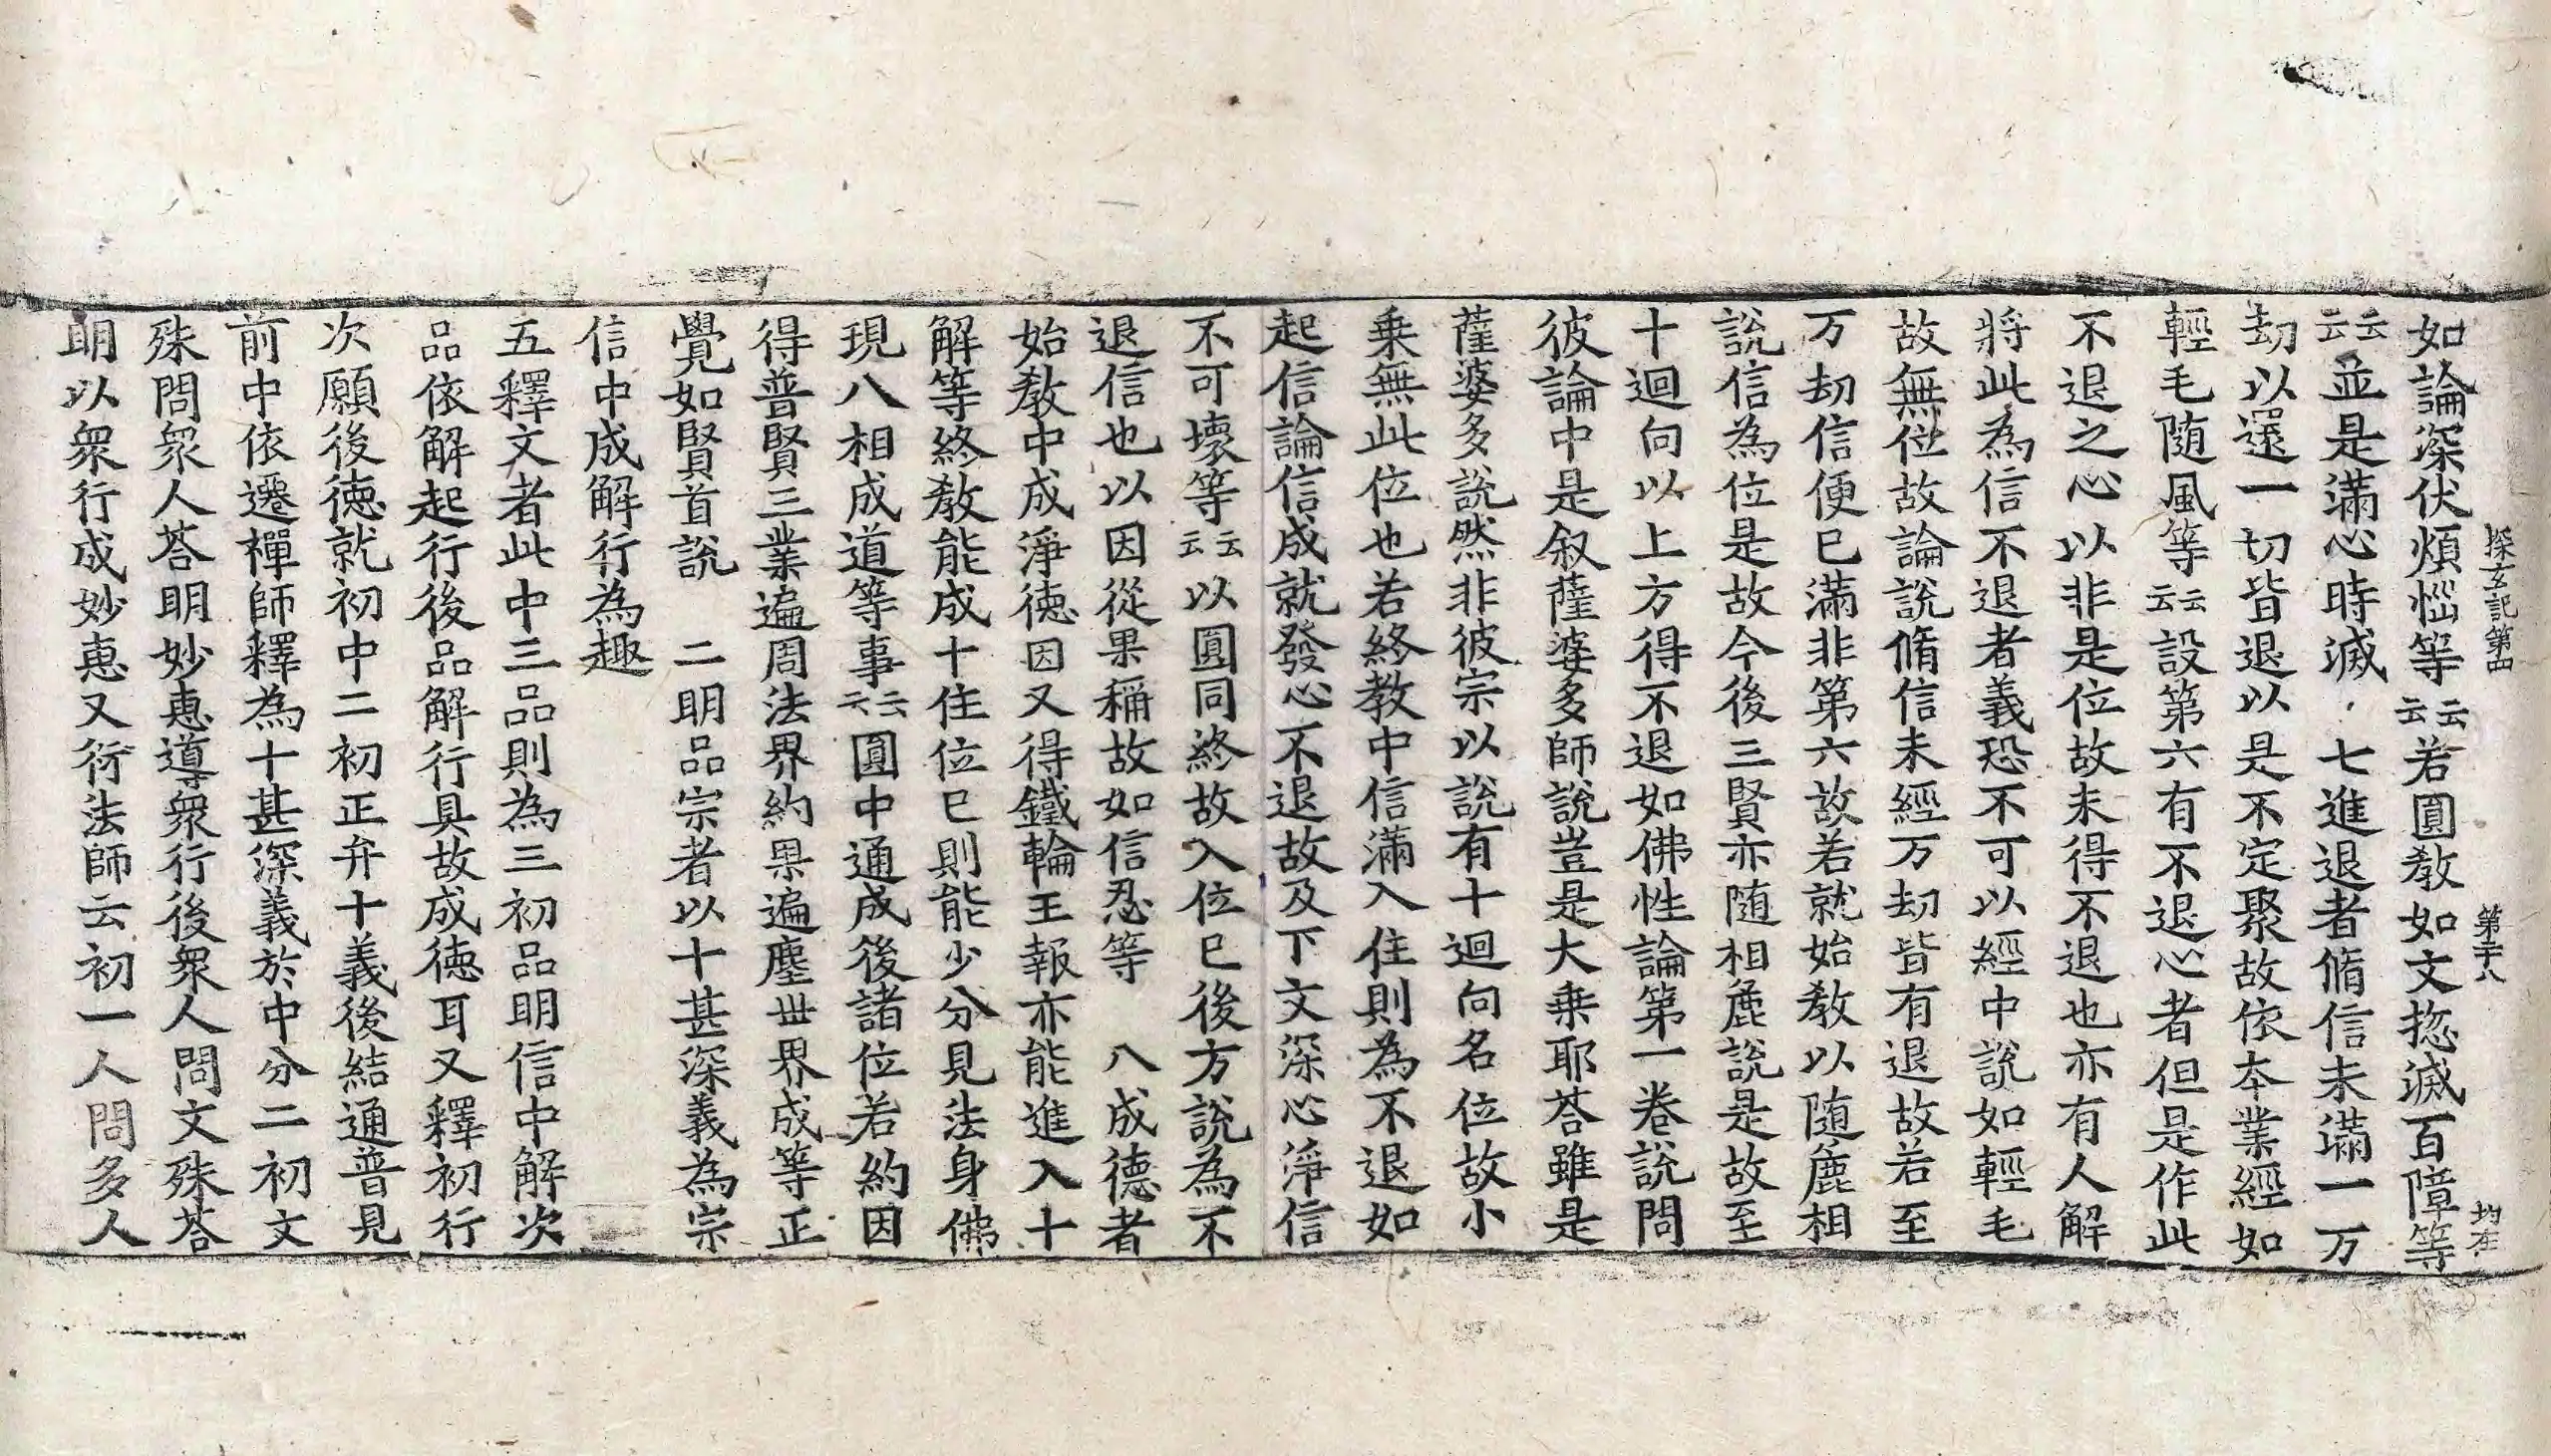 探玄記第四 第二十八 均在
如論深伏煩惱等云云若圓教如文揔滅百障等
云云並是滿心時滅 七進退者脩信未滿一万
劫以還一切皆退以是不定聚故依本業經如
輕毛随風等云云設第六有不退心者但是作此
不退之心以非是位故未得不退也亦有人解
將此為信不退者義恐不可以經中說如輕毛
故無位故論說脩信未經万劫皆有退故若至
万劫信便已滿非第六故若就始教以随麁相
說信為位是故今後三賢亦随相麁說是故至
十迴向以上方得不退如佛性論第一卷說問
彼論中是叙薩婆多師說豈是大乗耶荅雖是
薩婆多說然非彼宗以說有十迴向名位故小
乗無此位也若終教中信滿入住則為不退如
起信論信成就發心不退故及下文深心淨信
不可壞等云云以圓同終故入位已後方說為不
退信也以因從果稱故如信忍等 八成德者
始教中成淨德因又得鐵輪王報亦能進入十
解等終教能成十住位已則能少分見法身佛
現八相成道等事云云圓中通成後諸位若約因
得普賢三業遍周法界約果遍塵丗界成等正
覺如賢首說 二明品宗者以十甚深義為宗
信中成解行為趣
五釋文者此中三品則為三初品明信中解次
品依解起行後品解行具故成德耳又釋初行
次願後德就初中二初正弁十義後結通普見
前中依遷禪師釋為十甚深義於中分二初文
殊問衆人荅明妙恵導衆行後衆人問文殊荅
明以衆行成妙恵又衍法師云初一人問多人